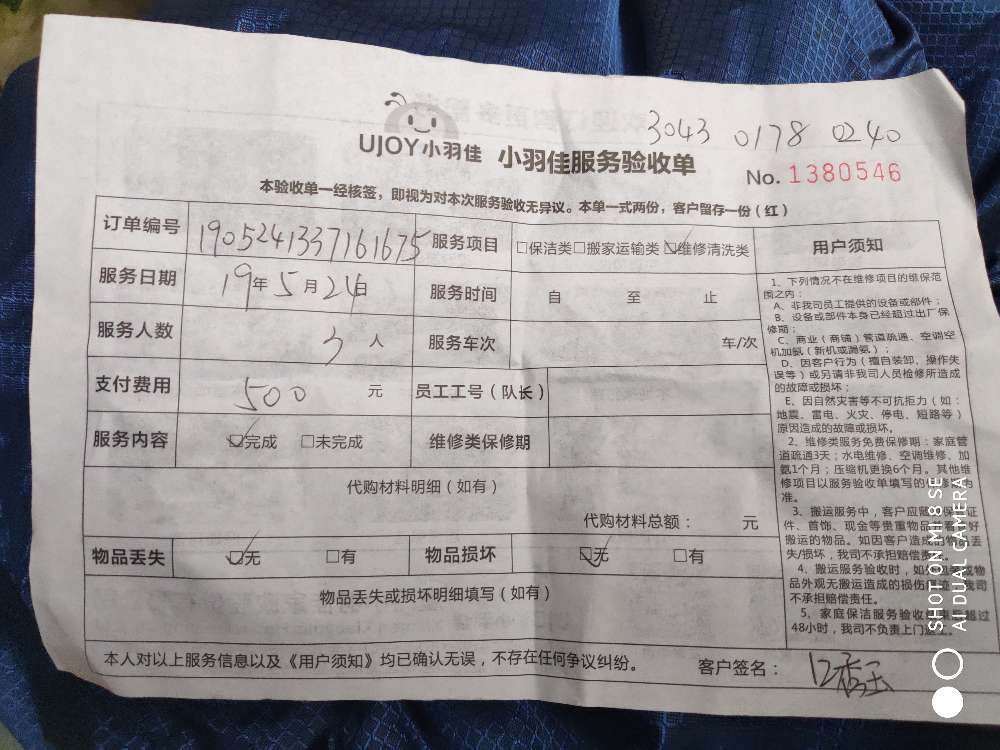 3043 0178 0240
UJOY小羽佳 小羽佳服务验收单
No. 1380546
本验收单一经核签，即视为对本次服务验收无异议。本单一式两份，客户留存一份（红）
订单编号 1905241337161675 服务项目 □保洁类□搬家运输类☑维修清洗类
服务日期 19年5月24日 服务时间 自 至 止
服务人数 3人 服务车次 车/次
支付费用 500元 员工工号（队长）
服务内容 ☑完成 □未完成 维修类保修期
代购材料明细（如有）
代购材料总额： 元
物品丢失 ☑无 □有 物品损坏 ☑无 □有
物品丢失或损坏明细填写（如有）
本人对以上服务信息以及《用户须知》均已确认无误，不存在任何争议纠纷。 客户签名：
用户须知
1、下列情况不在维修项目的维保范
围之内：
A、非我司员工提供的设备或部件；
B、设备或部件本身已经超过出厂保
修期；
C、商业（商铺）管道疏通、空调空
机加氨（新机或漏氨）；
D、因客户行为（擅自装卸，操作失
误等）或另请非我司人员检修所造成
的故障或损坏；
E、因自然灾害等不可抗拒力（如：
地震、雷电、火灾、停电、短路等）
原因造成的故障或损坏。
2、维修类服务免费保修期：家庭管
道疏通3天；水电维修、空调维修、加
氨1个月；压缩机更换6个月。其他维
修项目以服务验收单填写的保修期为
准。
3、搬运服务中，客户应
件、首饰、现金等贵重物品
搬运的物品。如因客户造成的物品丢
失/损坏，我司不承担赔偿责任。
4、搬运服务验收时，如
品外观无搬运造成的损伤
不承担赔偿责任。
5、家庭保洁服务验收 超过
48小时，我司不负责上门返工。
SHOT ON MI 8 SE
AI DUAL CAMERA